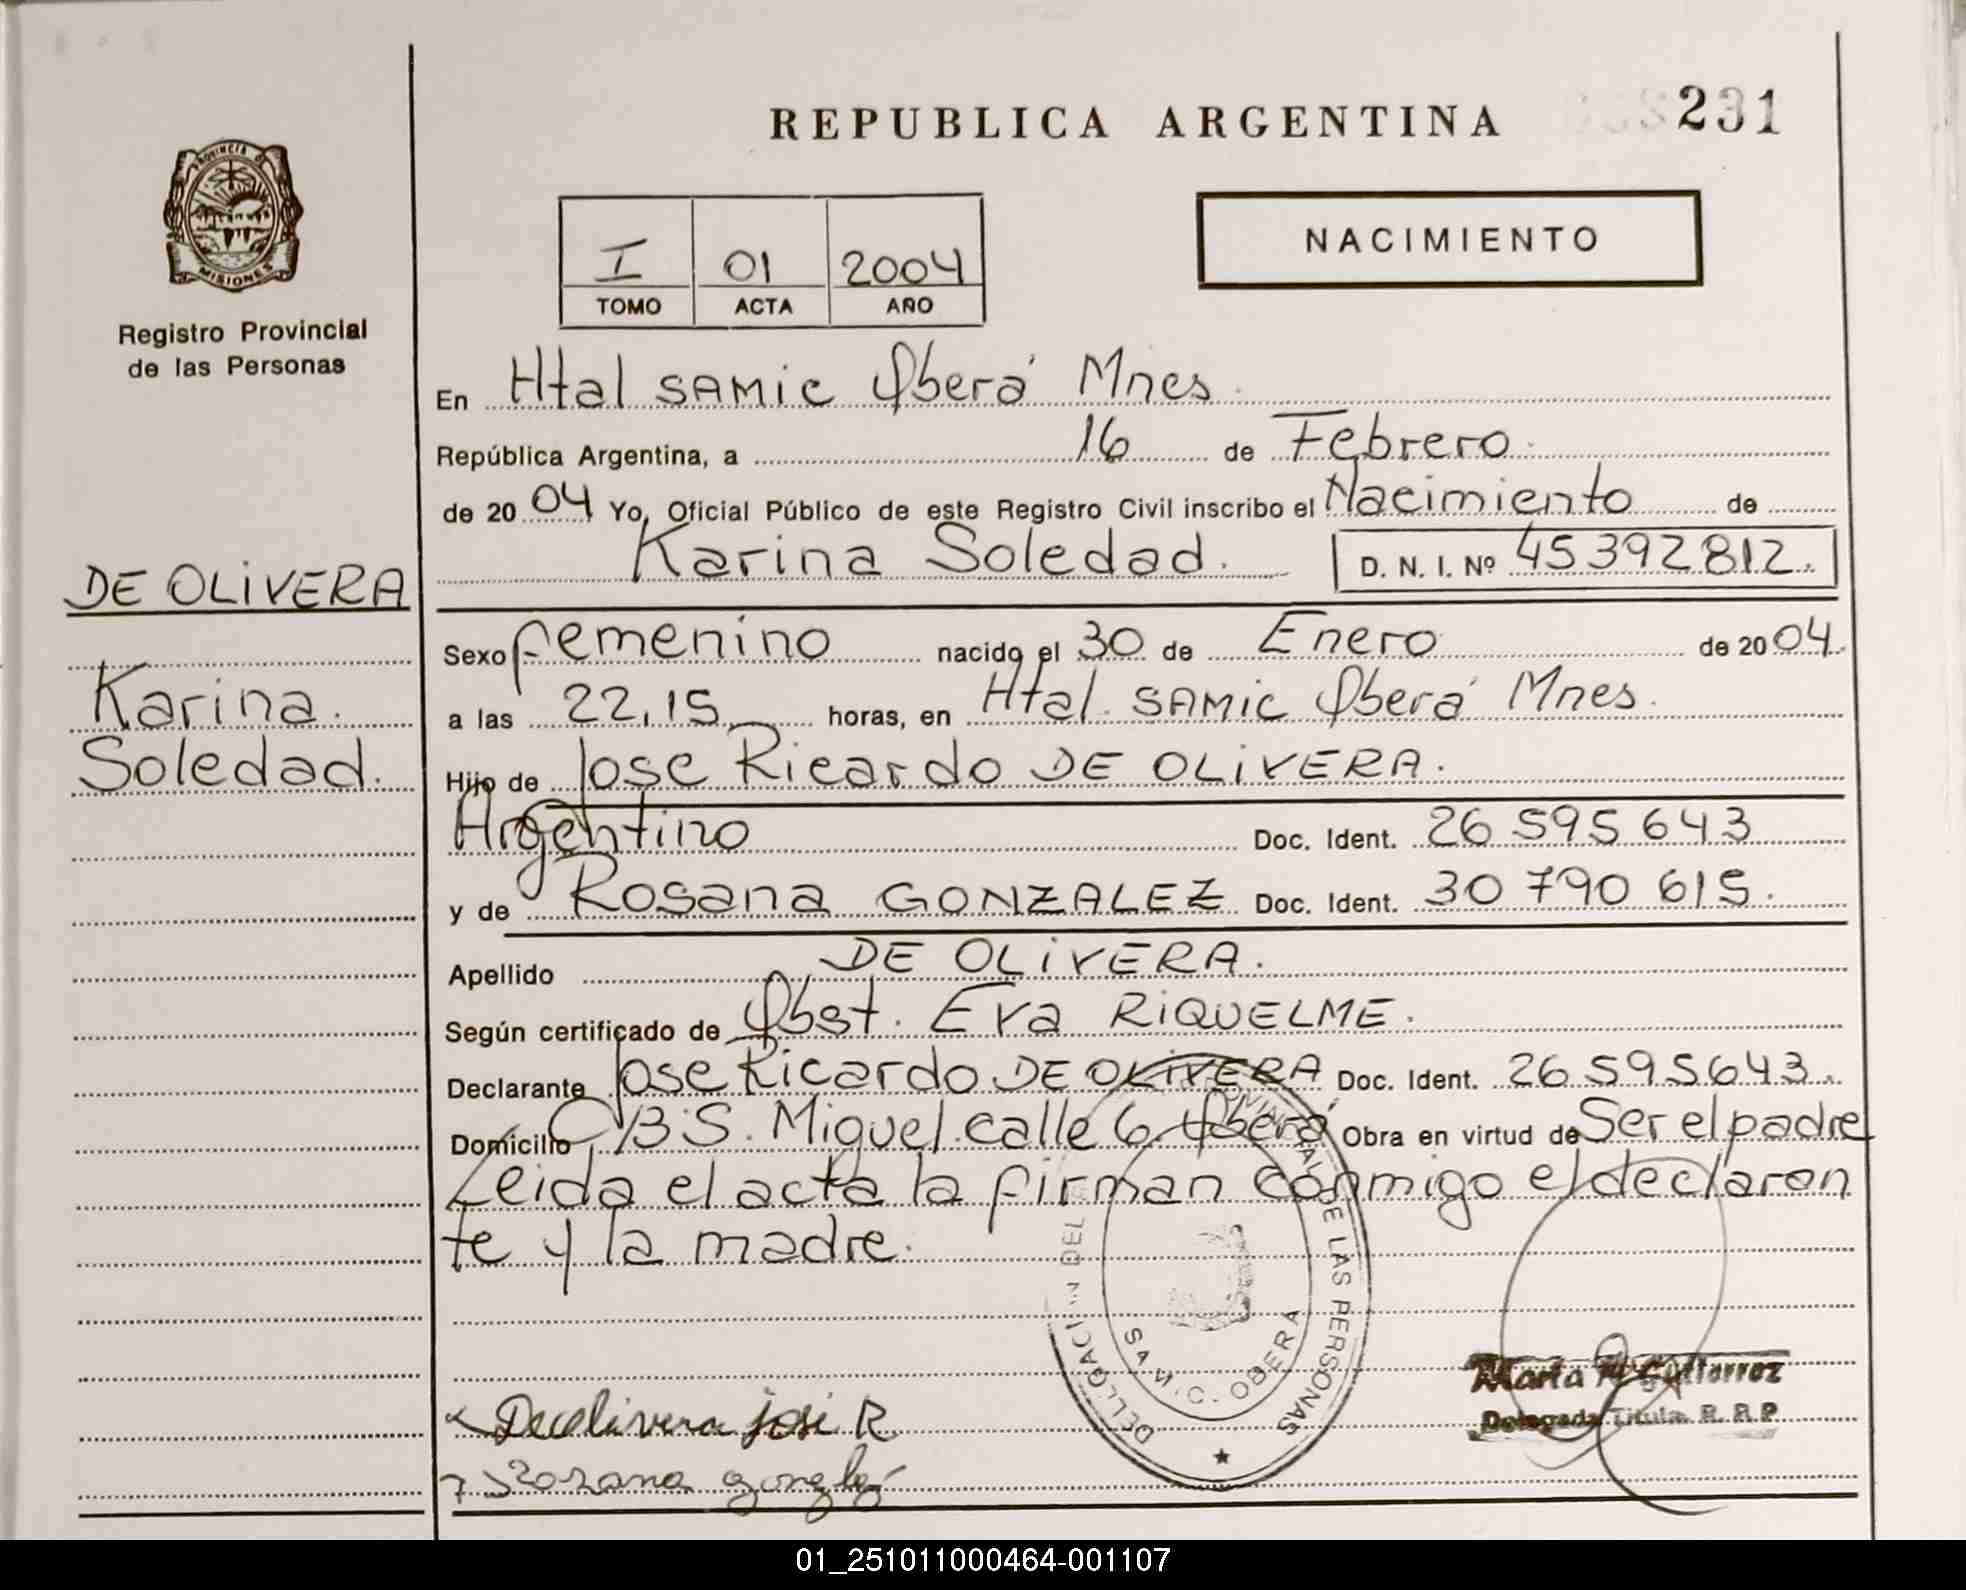 REPUBLICA ARGENTINA
231
PROVINCIA DE
MISIONES
Registro Provincial
de las Personas
I 01 2004
TOMO ACTA AÑO
NACIMIENTO
En Htal SAMIC Oberá Mnes.
República Argentina, a 16 de Febrero.
de 2004 Yo, Oficial Público de este Registro Civil inscribo el Nacimiento de
Karina Soledad. D. N. I. Nº 45392812.
DE OLIVERA
Karina
Soledad.
Sexo femenino nacido el 30 de Enero de 2004.
a las 22,15 horas, en Htal. SAMIC Oberá Mnes.
Hijo de Jose Ricardo DE OLIVERA.
Argentino Doc. Ident. 26 595 643
y de Rosana GONZALEZ Doc. Ident. 30 790 615.
Apellido DE OLIVERA.
Según certificado de Obst. Eva RIQUELME.
Declarante Jose Ricardo DE OLIVERA Doc. Ident. 26 595643.
Domicilio B S. Miguel calle 6 Oberá Obra en virtud de Ser el padre
Leida el acta la firman conmigo el declaran
te y la madre.
DE LAS PERSONAS
OBERA
Marta M Gutierrez
Delegada Titular R. R. P
josi R
Rozana
01_251011000464-001107